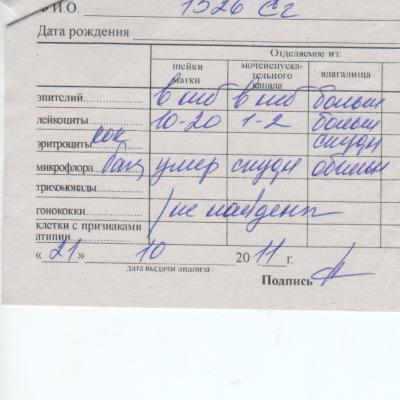 Ф.И.О. 1526 Сг
Дата рождения
Отделяемое из:
шейки матки
мочеиспуска-тельного канала
влагалища
эпителий в шб в шб больш
лейкоциты 10-20 1-2 больш
эритроциты кок скудн
микрофлора бац умер скудн обильн
трихомонады
гонококки не найдены
клетки с признаками
атипии
«21» 10 2011 г.
дата выдачи анализа
Подпись